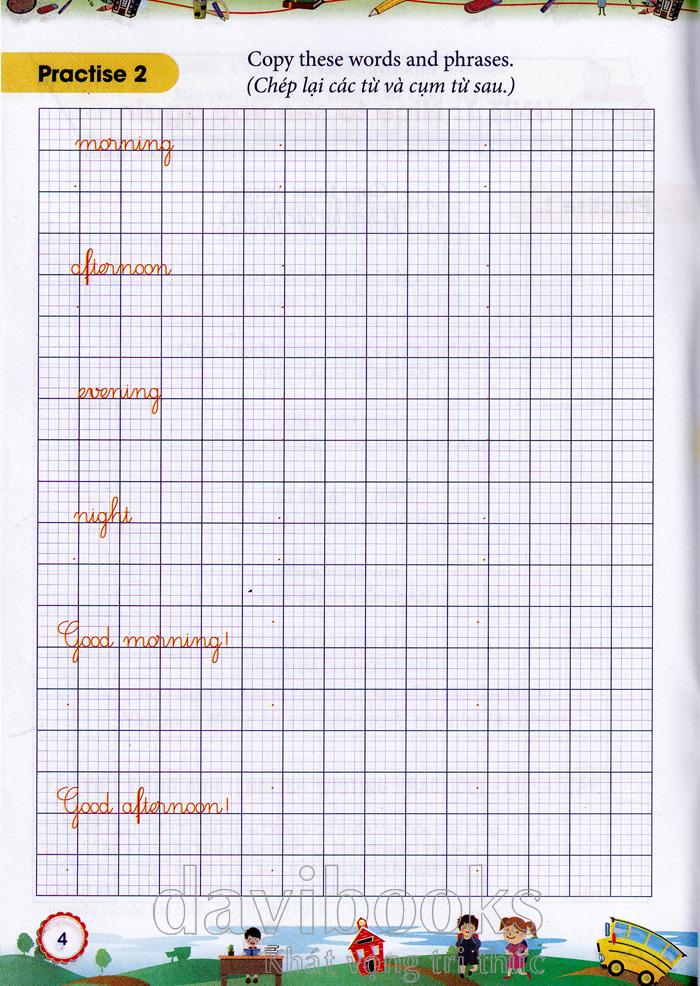 Practise 2
Copy these words and phrases.
(Chép lại các từ và cụm từ sau.)
morning
afternoon
evening
night
Good morning!
Good afternoon!
davibooks
Nhát vọng tri thức
4